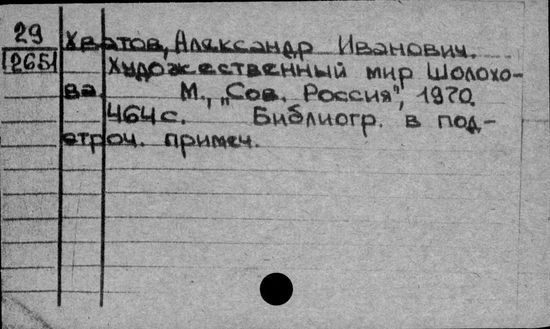 29 Хватов, Александр Иванович.
2651 Художественный мир Шолохо-
ва. М., „Сов. Россия", 1970.
464 с. Библиогр. в под-
строч. примеч.